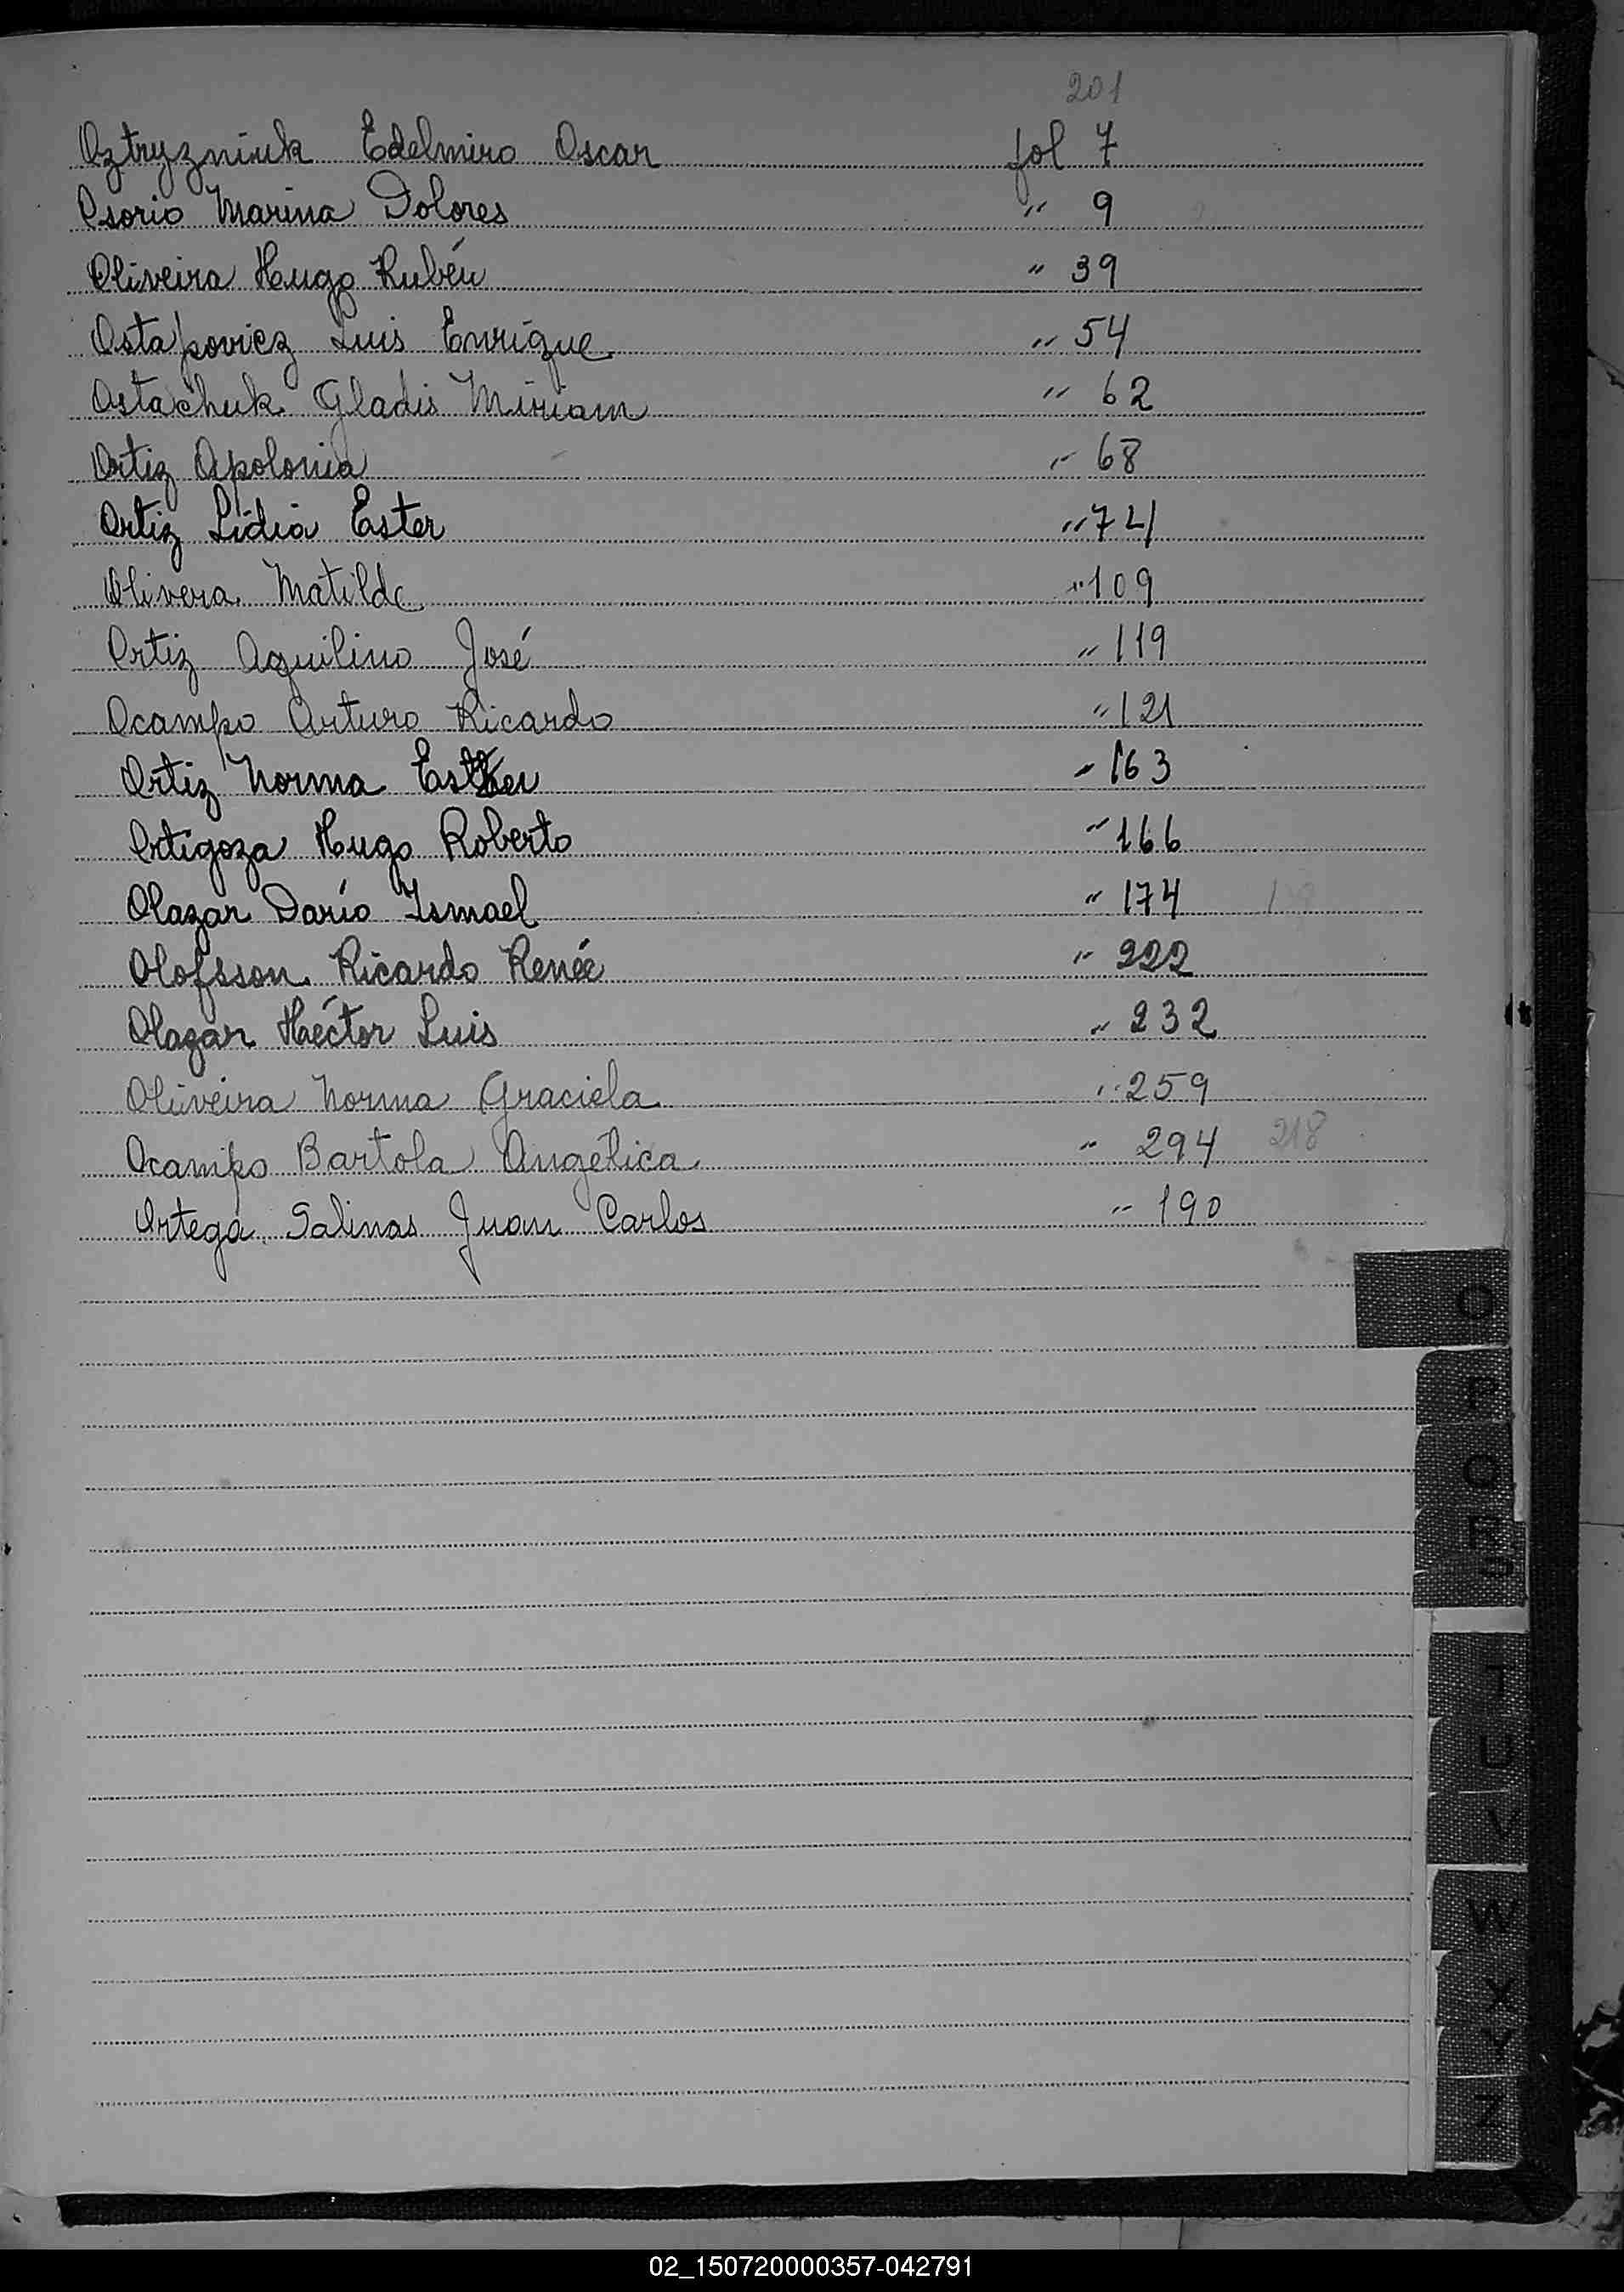 201
Oztryzniuk Edelmiro Oscar fol 7
Osorio Marina Dolores " 9
Oliveira Hugo Rubén " 39
Ostapovicz Luis Enrique " 54
Ostachuk Gladis Miriam " 62
Ortiz Apolonia " 68
Ortiz Lidia Ester " 74
Olivera Matilde " 109
Ortiz Aquilino José " 119
Ocampo Arturo Ricardo " 121
Ortiz Norma Esther " 163
Ortigoza Hugo Roberto " 166
Olazar Darío Ismael " 174
Olofsson Ricardo Renée " 222
Olazar Héctor Luis " 232
Oliveira Norma Graciela " 259
Ocampo Bartola Angélica " 294 218
Ortega Salinas Juan Carlos " 190
O
P
Q
R
S
T
U
V
W
X
Y
Z
02_150720000357-042791